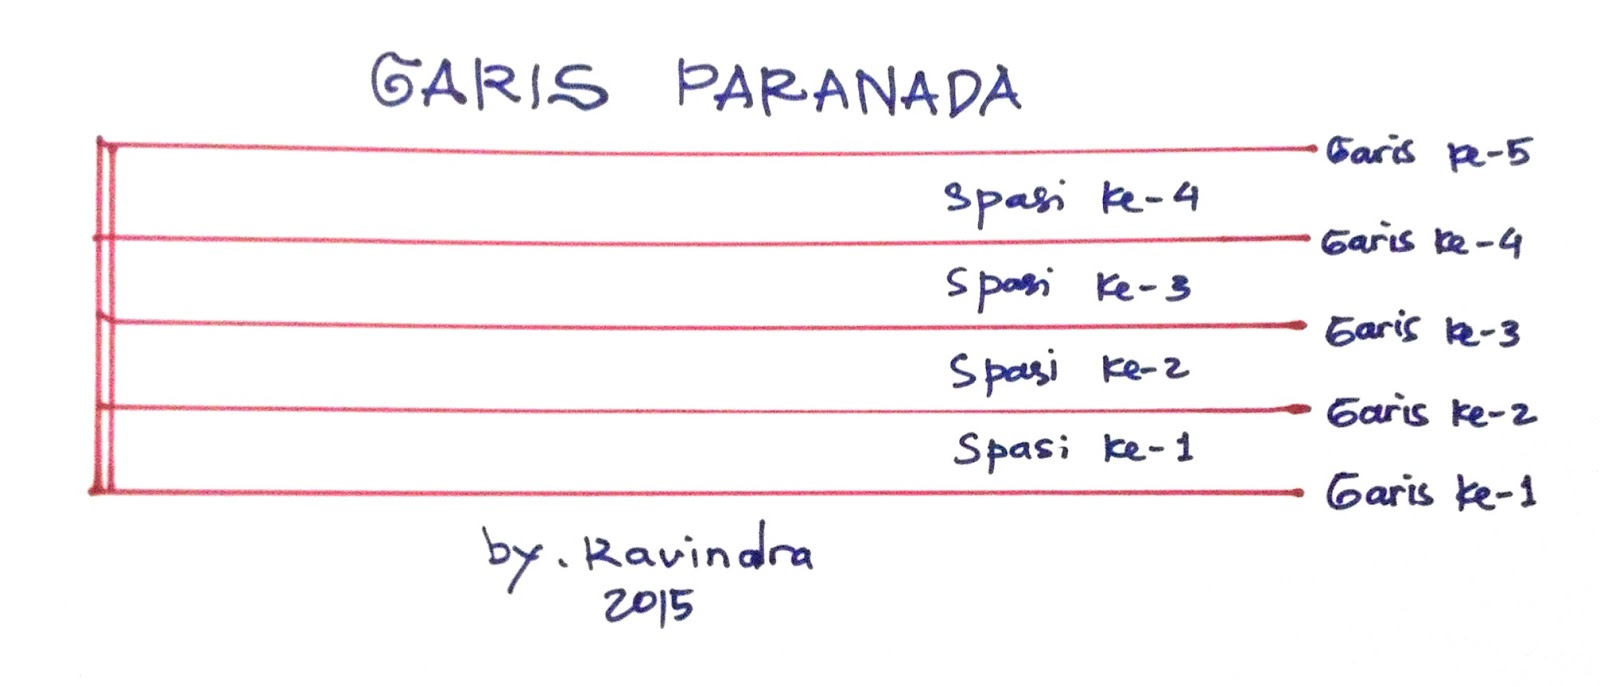 GARIS PARANADA
Garis ke-5
Spasi ke-4
Garis ke-4
Spasi ke-3
Garis ke-3
Spasi ke-2
Garis ke-2
Spasi ke-1
Garis ke-1
by. Ravindra
2015